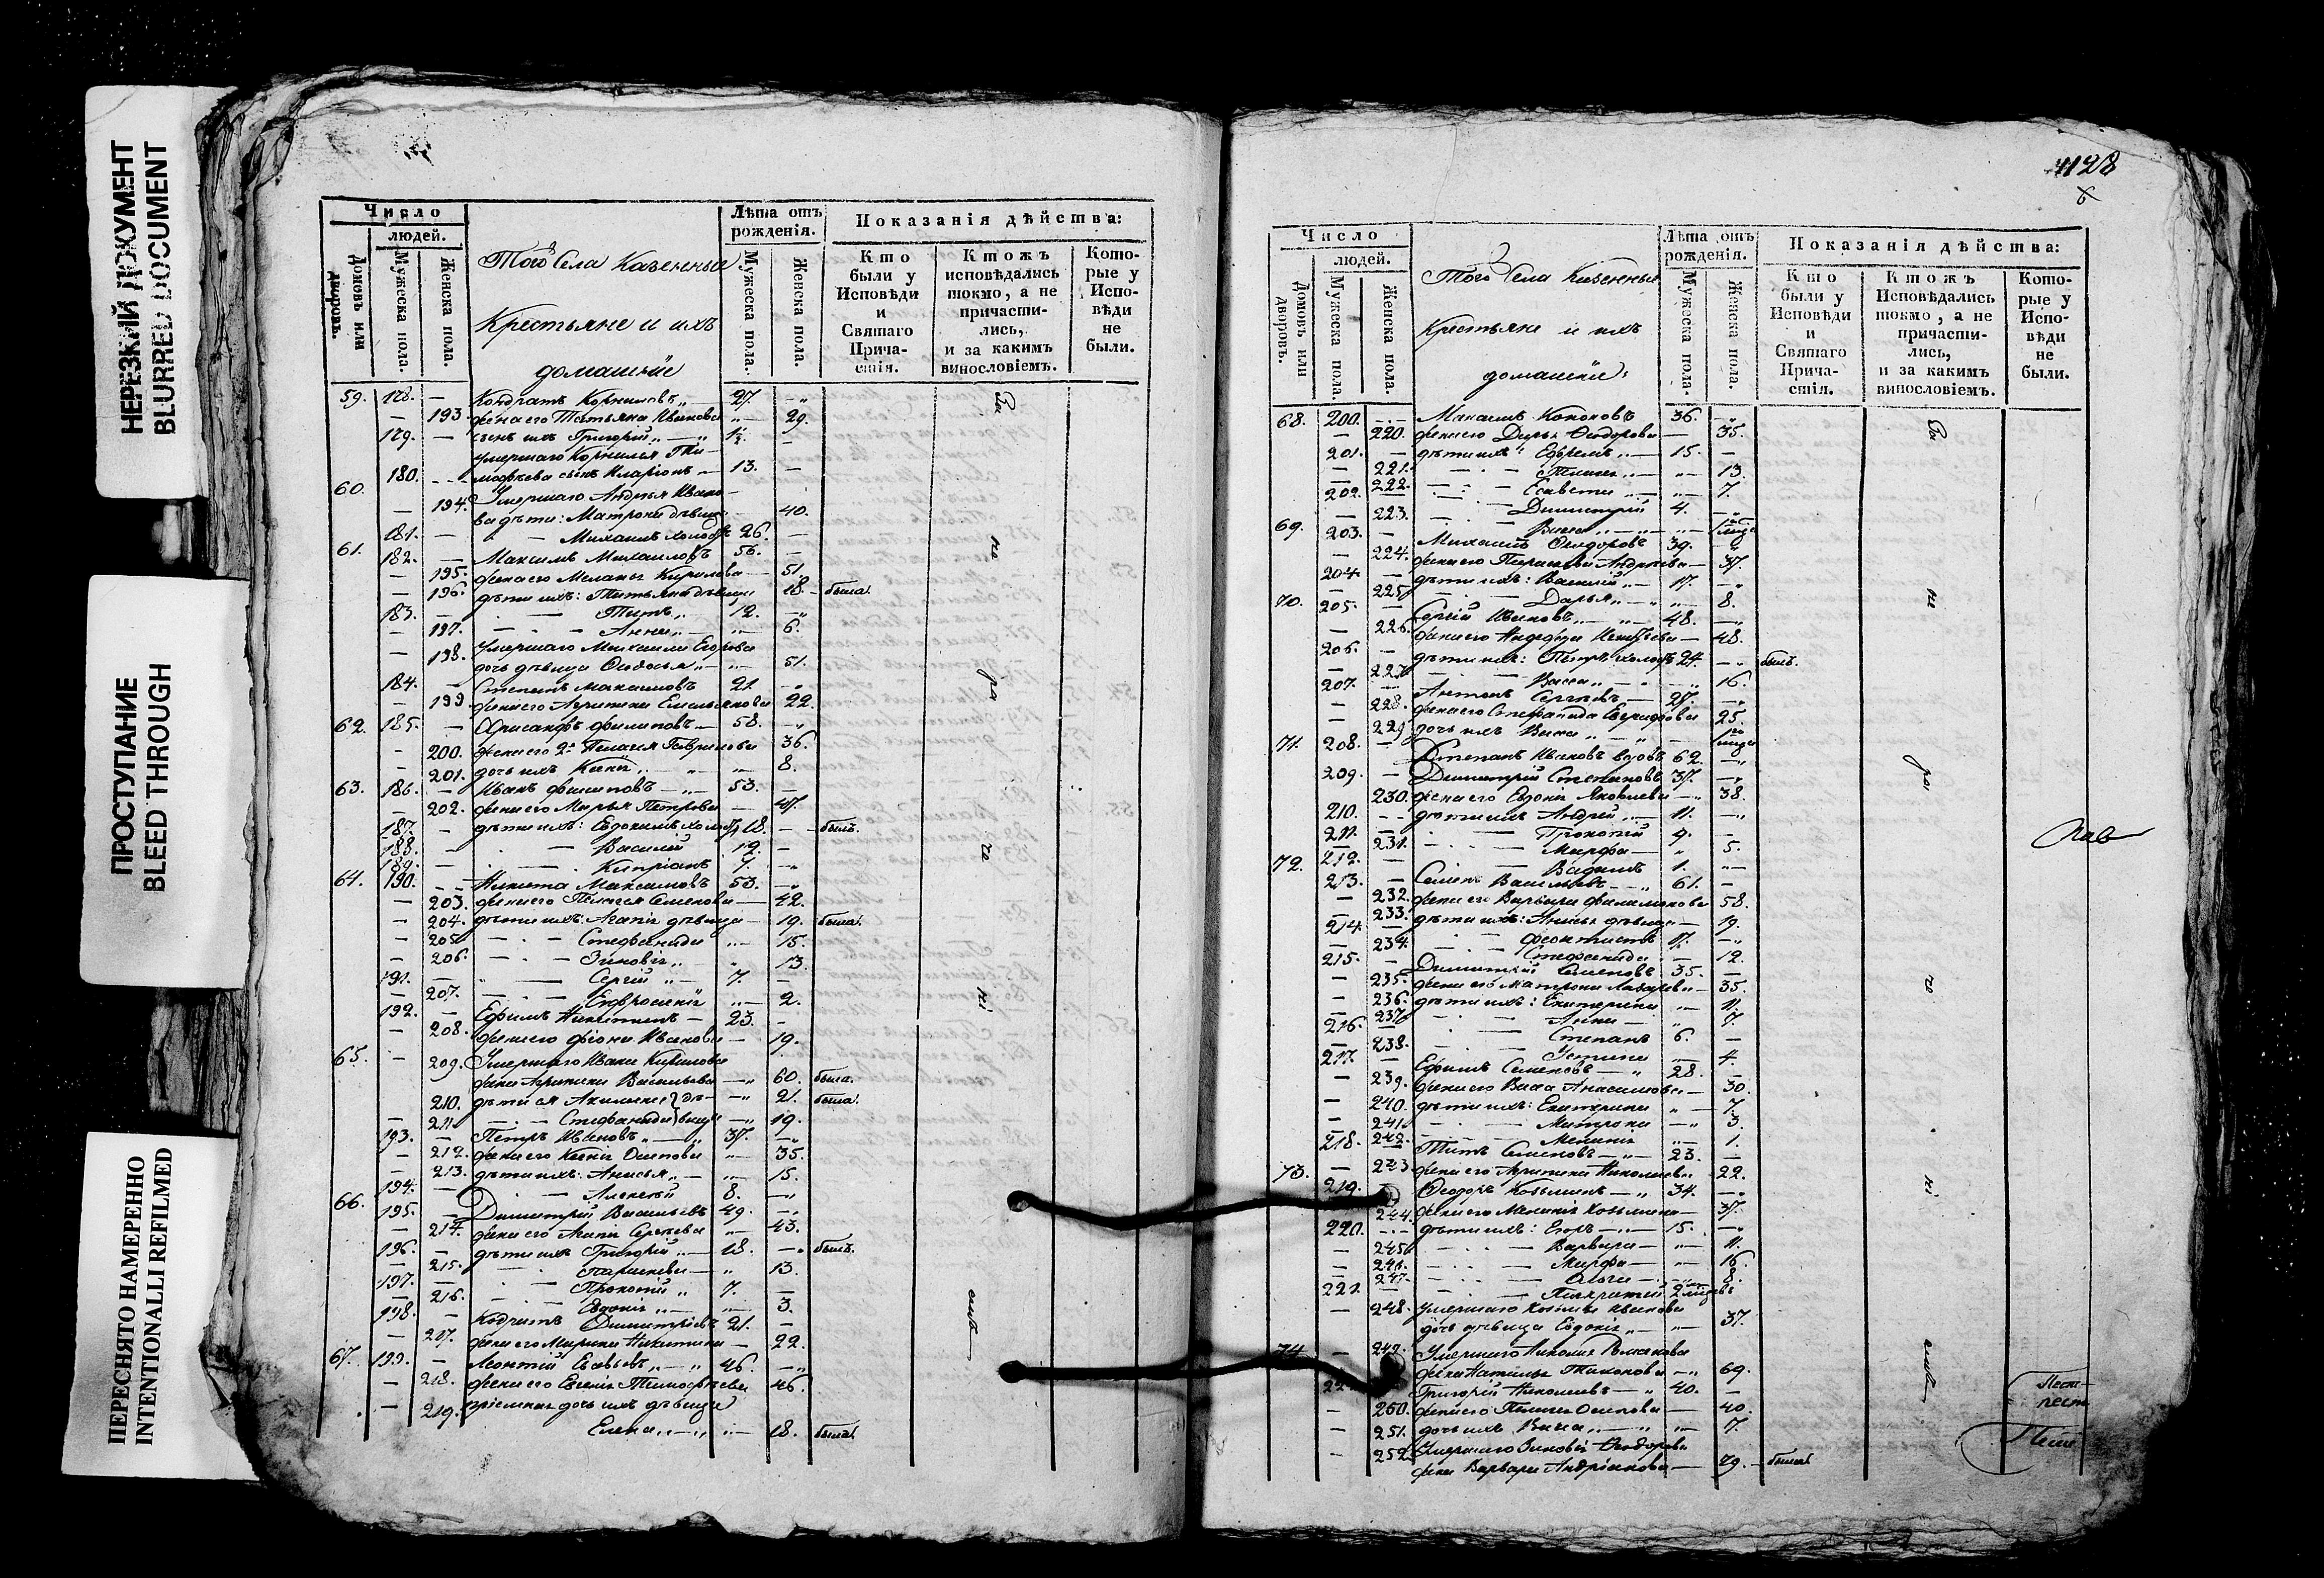 НЕРЕЗКИЙ ДОКУМЕНТ
BLURRED DOCUMENT
ПРОСТУПАНИЕ
BLEED THROUGH
ПЕРЕСНЯТО НАМЕРЕННО
INTENTIONALLI REFILMED
Число
людей.
Домовъ или дворовъ.
Мужеска пола.
Женска пола.
Того Села Казенные
Крестьяне и ихъ
домашніе
Лѣта отъ
рожденія.
Мужеска пола.
Женска пола.
Показанія дѣйства:
Кто
были у
Исповѣди
и
Святаго
Прича-
стія.
Ктожъ
исповѣдались
токмо, а не
причасти-
лись,
и за какимъ
винословіемъ.
Кото-
рые у
Испо-
вѣди
не
были.
59. 178. — Кондратъ Корниловъ 27. —
— 193. жена его Татьяна Иванова — 29.
179. — сынъ ихъ Григорій 1½. —
умершаго Корнилья Ти-
180. — мофѣева сынъ Иларіонъ — 13. —
60. 194. Умершаго Андрея Ивано-
ва дѣти: Матрона дѣвица 40.
181. — Михаилъ холостъ 26. —
61. 182. — Максимъ Михаиловъ 56. —
— 195. жена его Меланья Кирилова — 51.
— 196. дѣти ихъ: Татьяна дѣвица 18. была.
183. — Титъ 12. —
— 197. — Анна — 6.
— 198. умершаго Михаила Егорова
дочь дѣвица Ѳеодосья — 51.
184. — Степанъ Максимовъ 21. —
— 199. жена его Агрипина Емельянова 22.
62. 185. — Хрисанфъ Филиповъ — 58. —
— 200. жена его 2я Пелагея Гаврилова 36.
— 201. дочь ихъ Ксенія — 8.
63. 186. — Иванъ Филиповъ — 53. —
— 202. жена его Марья Петрова — 47.
187. — дѣти ихъ: Евдокимъ холостъ 18. — былъ.
188. — Василій 12. —
189. — Кипріанъ 7. —
64. 190. — Никита Максимовъ 53. —
— 203. жена его Пелагея Семенова — 42.
— 204. дѣти ихъ: Агапія дѣвица — 19. была.
— 205 — Стефанида — 15.
— 206. — Зиновія 13.
191. — Сергій 7. —
— 207. — Евфросинія — 2.
192. — Ефимъ Никитинъ — 23. —
— 208. жена его Фіона Иванова — 19.
65. — 209. Умершаго Ивана Кирилова
жена Агрипина Васильева — 60. была.
210. дѣти ея Акилина } дѣ- — 21. была.
— 211. — Стефанида } вицы — 19.
193. — Петръ Ивановъ 37. —
— 212. жена его Ксенія Осипова 35.
— 213. дѣти ихъ: Анисья — 15.
194. — Алексѣй 8. —
66. 195. — Димитрій Васильевъ 49. —
— 214. жена его Агапія Сергѣева 43.
196. — дѣти ихъ Григорій — 18. — былъ.
— 215. — Параскева — 13.
197. — Прокопій 7. —
— 216. — Евдокія — 3.
198. — Кодратъ Димитріевъ 21. —
— 217. жена его Марина Никитина — 22.
67. 199. — Леонтій Савельевъ 46. —
— 218. жена его Евгенія Тимофѣева 46.
— 219. пріемная дочь ихъ дѣвица
Елена — 18. была.
За
не
ра
че
ні
емъ
4128
Число
людей.
Домовъ или дворовъ.
Мужеска пола.
Женска пола.
Того Села Казенные
Крестьяне и ихъ
домашніе:
Лѣта отъ
рожденія.
Мужеска пола.
Женска пола.
Показанія дѣйства:
Кто
были у
Исповѣди
и
Святаго
Прича-
стія.
Ктожъ
Исповѣдались
токмо, а не
причасти-
лись,
и за какимъ
винословіемъ.
Кото-
рые у
Испо-
вѣди
не
были.
68. 200. — 36.
— 220. жена его Дарья Ѳеодорова — 35.
201. — дѣти ихъ: Ефремъ — 15. —
— 221. — 13.
— 222. — 7.
202. — Димитрій 4. —
— 223. — Васса
69. 203. — Михаилъ Ѳеодоровъ 39. —
— 224. жена его Параскева Андреева — 37.
204. — дѣти ихъ: Василій — 17. —
— 225 — Дарья — 8.
70. 205. — Сергій Ивановъ 48. —
— 226. жена его 48.
206. — дѣти ихъ: Петръ холостъ 24. — былъ.
— 227. — Васса — 16.
207. — Антонъ Сергѣевъ — 27. —
— 228. жена его Стефанида 25.
— 229. дочь ихъ
71. 208. — Степанъ Ивановъ вдовъ 62. —
209. — Димитрій Степановъ 37. —
230. жена его Евдокія Яковлева — 38.
210. — дѣти ихъ Андрей 11. —
211. — Прокопій 9. —
— 231. — Марфа — 5.
212. — 1. —
72. 213. — Семенъ Васильевъ — 61. —
— 232. жена его Варвара Филимонова 58.
— 233. дѣти ихъ: Анисья дѣвица — 19.
214. — Феоктистъ 17. —
— 234. — Стефанида — 12.
215. — Димитрій Семеновъ 35. —
— 235. жена его Матрона Лазарева — 35.
— 236. дѣти ихъ: Екатерина — 11.
— 237. — Анна — 7.
216. — Степанъ 6. —
— 238. — Устинья — 4.
217. — Ефимъ Семеновъ — 28. —
— 239. жена его 30.
— 240. дѣти ихъ: Екатерина — 7.
— 241. — Матрона — 3.
— 242. — Меланія 1.
218. — Титъ Семеновъ — 23. —
— 243. жена его Агрипина Николаева 22.
73. 219. — Ѳеодоръ Козьминъ — 34. —
— 244. жена его Меланія 37.
220. — дѣти ихъ: Егоръ — 15. —
— 245. — Варвара — 11.
— 246. — Марфа — 16.
— 247. — Ольга — 8.
221. — Панкратій
— 248. умершаго Козьмы Иванова
дочь дѣвица Евдокія — 37.
74. — 249. Умершаго Николая Романова
жена Наталья 69.
Григорій Николаевъ — 40. —
— 250. жена его Пелагея Осипова — 40.
— 251. дочь ихъ 7.
— 252. Умершаго Зиновія Ѳеодорова
жена Варвара Андріанова — 79. — была.
За
не
ра
че
ні
емъ